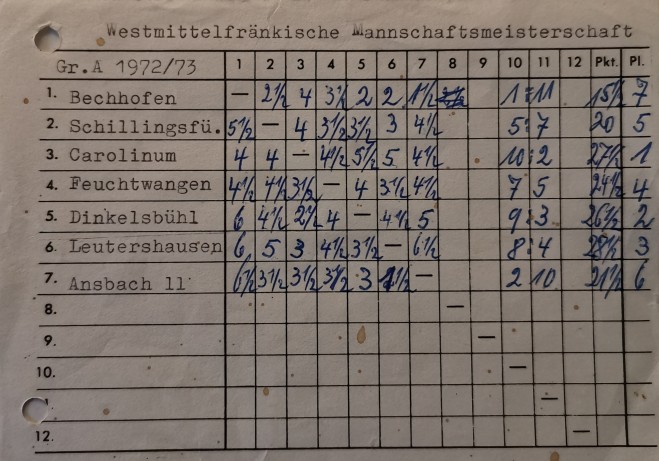 Westmittelfränkische Mannschaftsmeisterschaft
Gr.A 1972/73 1 2 3 4 5 6 7 8 9 10 11 12 Pkt. Pl.
1. Bechhofen — 2½ 4 3½ 2 2 1½ 1:11 15½ 7
2. Schillingsfü. 5½ — 4 3½ 3½ 3 4½ 5:7 20 5
3. Carolinum 4 4 — 4½ 5½ 5 4½ 10:2 27½ 1
4. Feuchtwangen 4½ 4½ 3½ — 4 3½ 4½ 7 5 24½ 4
5. Dinkelsbühl 6 4½ 2½ 4 — 4½ 5 9:3 26½ 2
6. Leutershausen 6 5 3 4½ 3½ — 6½ 8:4 28½ 3
7. Ansbach ll 6½ 3½ 3½ 3½ 3 1½ — 2 10 21½ 6
8. —
9. —
10. —
—
12. —